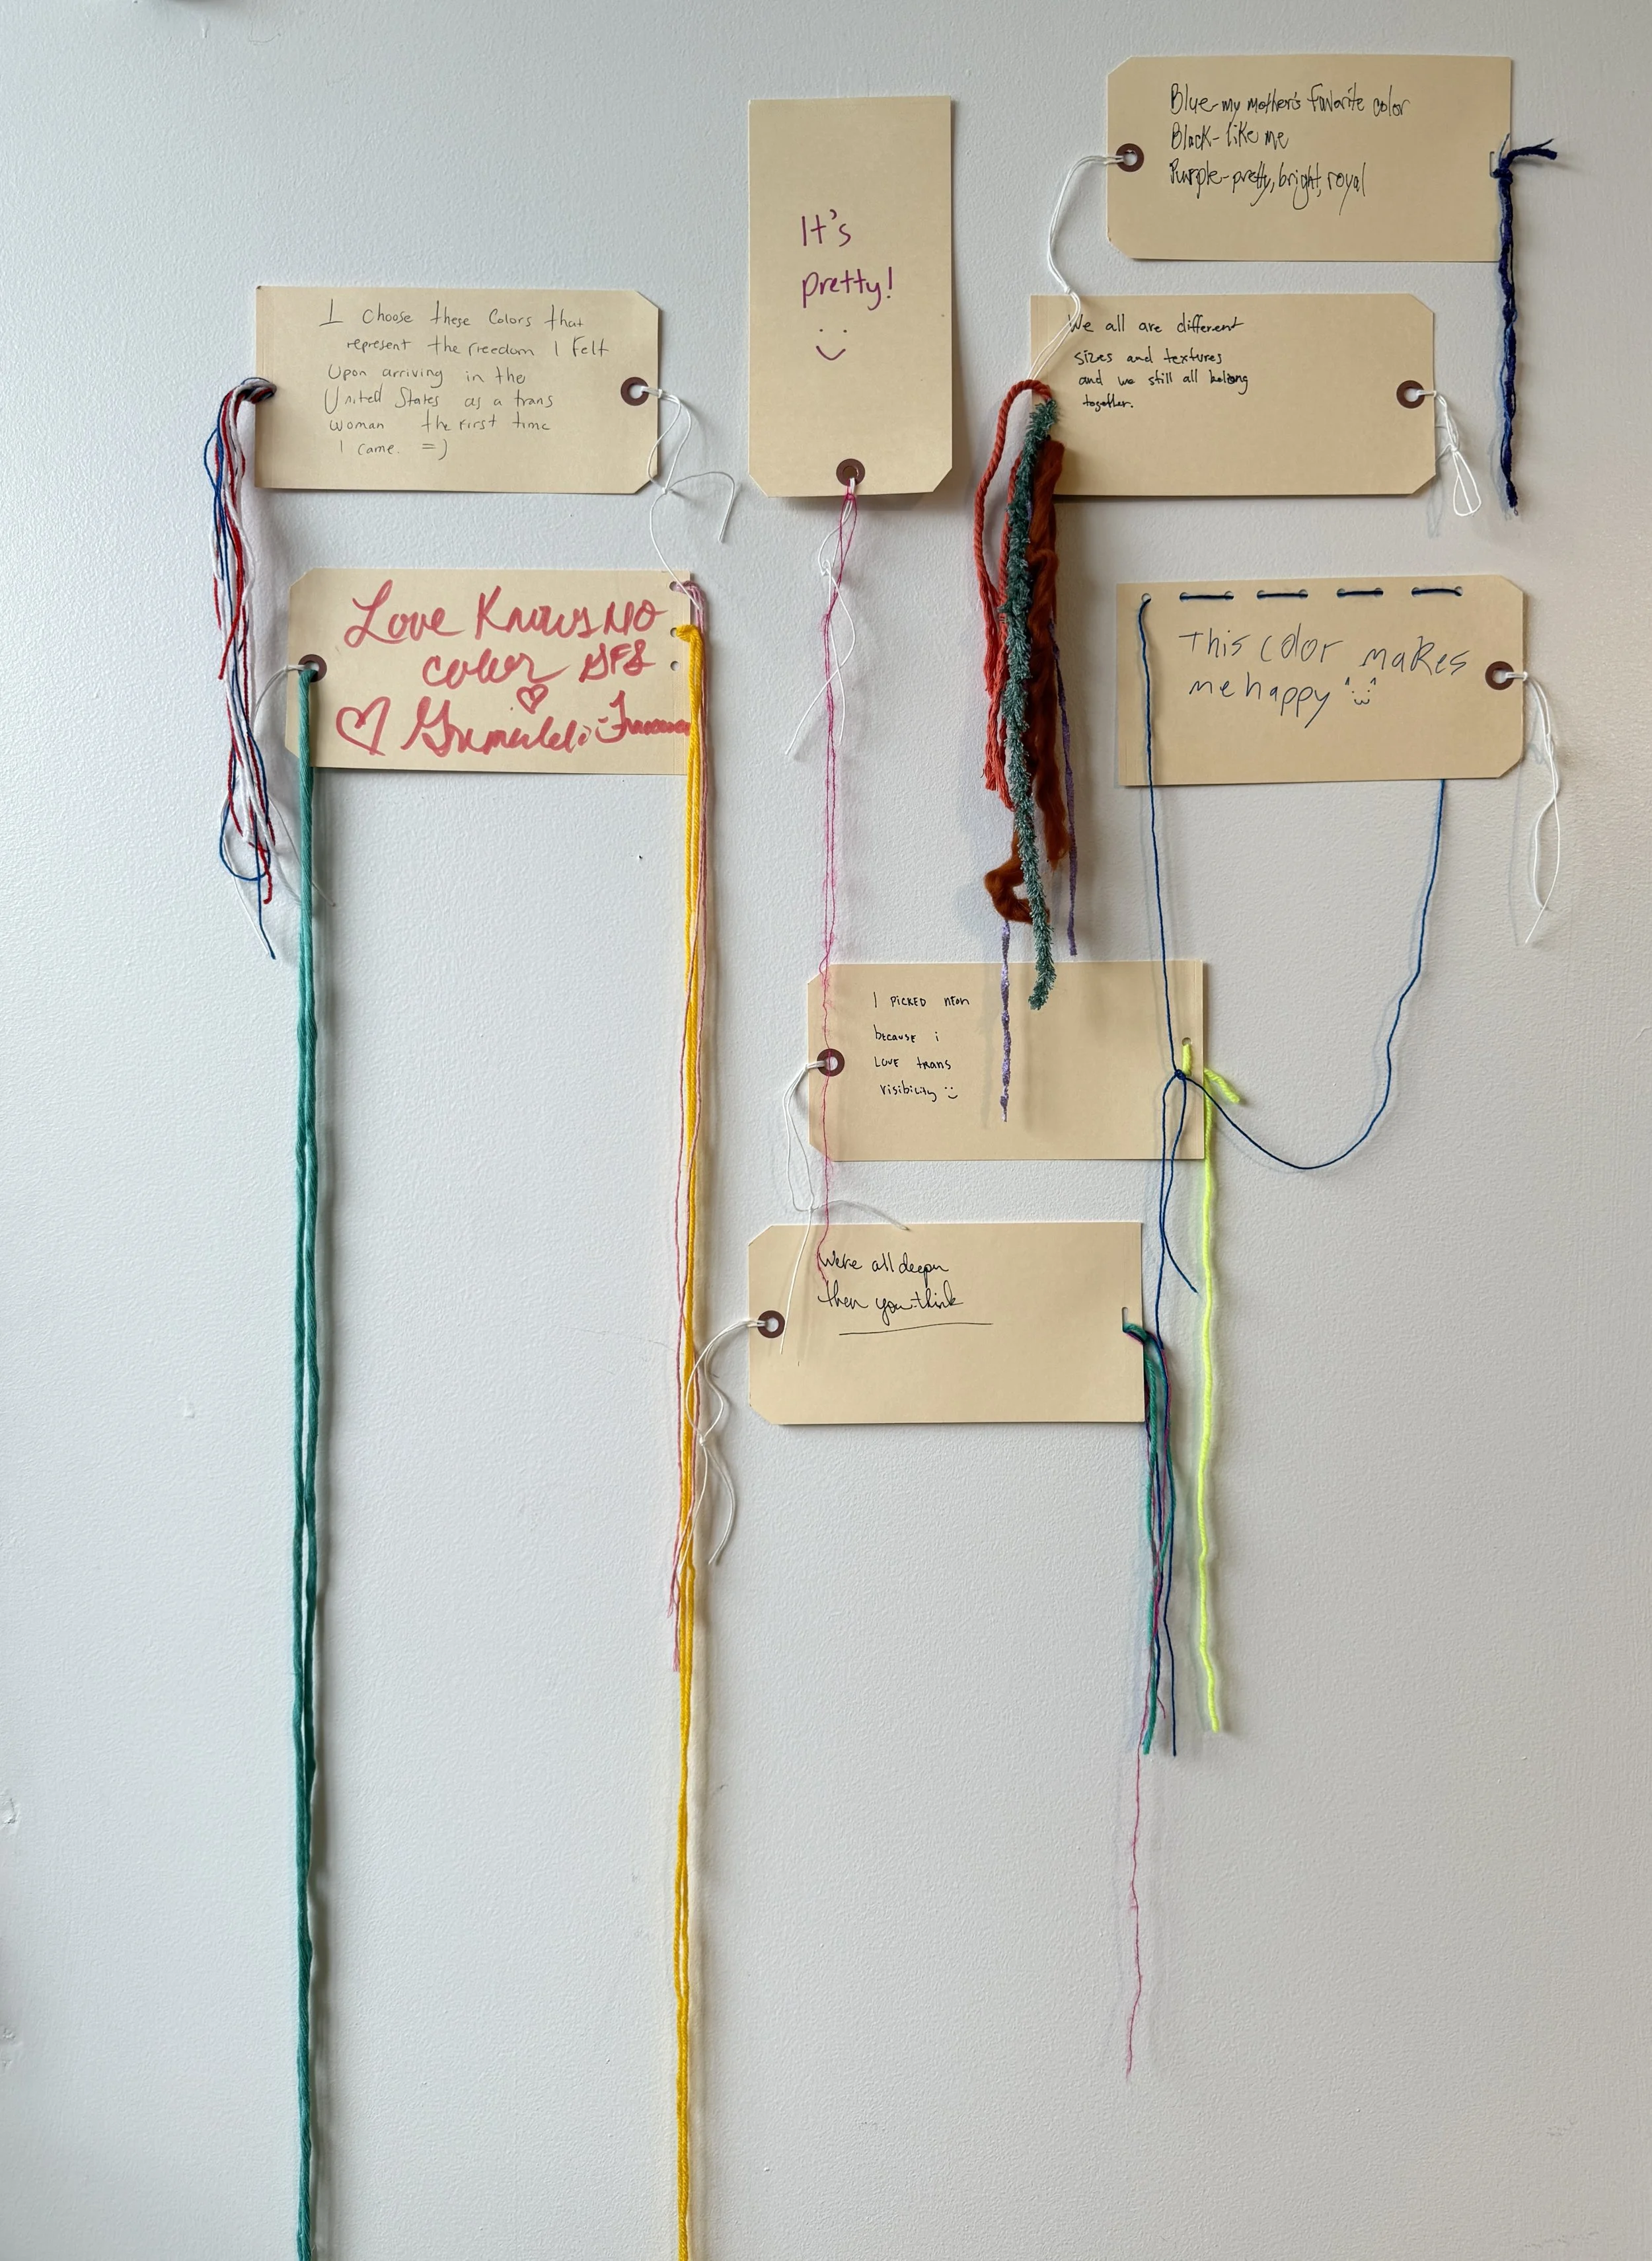 I choose these colors that
represent the freedom I felt
Upon arriving in the
United States as a trans
woman the first time
I came. =)
Love Knows NO
color GFS
It's
pretty!
Blue-my mother's favorite color
Black-like me
Purple-pretty, bright, royal
We all are different
sizes and textures
and we still all belong
together.
This color makes
me happy
I PICKED NEON
because i
LOVE trans
visibility
We're all deeper
then you think